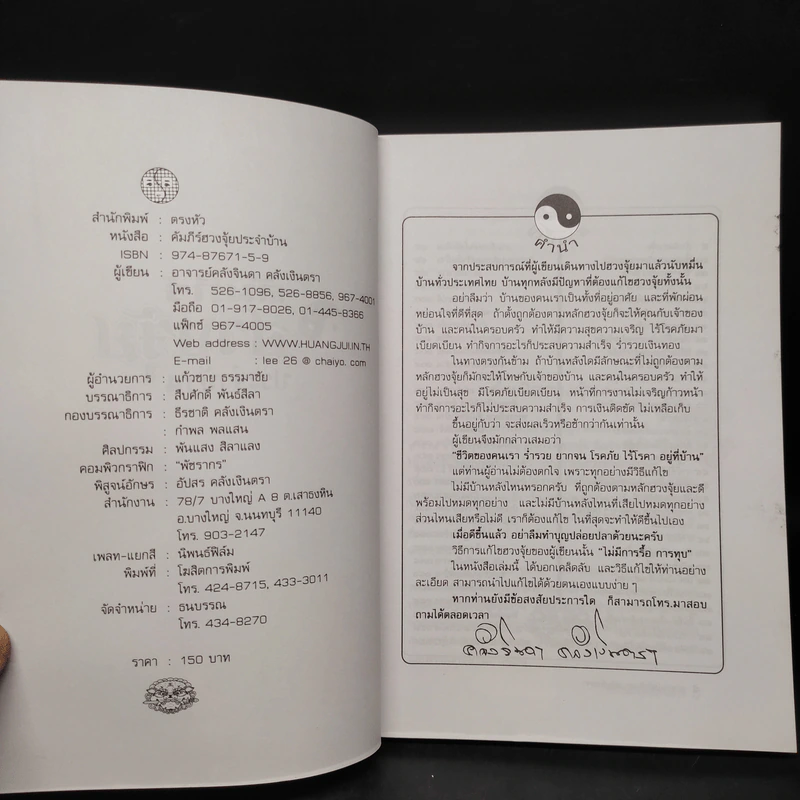 สำนักพิมพ์ : ตรงหัว
หนังสือ : คัมภีร์ฮวงจุ้ยประจำบ้าน
ISBN : 974-87671-5-9
ผู้เขียน : อาจารย์คลังจินดา คลังเงินตรา
โทร. 526-1096, 526-8856, 967-4001
มือถือ 01-917-8026, 01-445-8366
แฟ็กซ์ 967-4005
Web address : WWW.HUANGJUI.IN.TH
E-mail : lee 26 @ chaiyo. com
ผู้อำนวยการ : แก้วชาย ธรรมาชัย
บรรณาธิการ : สืบศักดิ์ พันธ์สีลา
กองบรรณาธิการ : ธีรชาติ คลังเงินตรา
: กำพล พลแสน
ศิลปกรรม : พันแสง สีลาแลง
คอมพิวกราฟิก : "พัชรากร"
พิสูจน์อักษร : อัปสร คลังเงินตรา
สำนักงาน : 78/7 บางใหญ่ A 8 ต.เสาธงหิน
อ.บางใหญ่ จ.นนทบุรี 11140
โทร. 903-2147
เพลท-แยกสี : นิพนธ์ฟิล์ม
พิมพ์ที่ : โฆสิตการพิมพ์
โทร. 424-8715, 433-3011
จัดจำหน่าย : ธนบรรณ
โทร. 434-8270
ราคา : 150 บาท
คำนำ
จากประสบการณ์ที่ผู้เขียนเดินทางไปฮวงจุ้ยมาแล้วนับหมื่น
บ้านทั่วประเทศไทย บ้านทุกหลังมีปัญหาที่ต้องแก้ไขฮวงจุ้ยทั้งนั้น
อย่าลืมว่า บ้านของคนเราเป็นทั้งที่อยู่อาศัย และที่พักผ่อน
หย่อนใจที่ดีที่สุด ถ้าตั้งถูกต้องตามหลักฮวงจุ้ยก็จะให้คุณกับเจ้าของ
บ้าน และคนในครอบครัว ทำให้มีความสุขความเจริญ ไร้โรคภัยมา
เบียดเบียน ทำกิจการอะไรก็ประสบความสำเร็จ ร่ำรวยเงินทอง
ในทางตรงกันข้าม ถ้าบ้านหลังใดมีลักษณะที่ไม่ถูกต้องตาม
หลักฮวงจุ้ยก็มักจะให้โทษกับเจ้าของบ้าน และคนในครอบครัว ทำให้
อยู่ไม่เป็นสุข มีโรคภัยเบียดเบียน หน้าที่การงานไม่เจริญก้าวหน้า
ทำกิจการอะไรก็ไม่ประสบความสำเร็จ การเงินติดขัด ไม่เหลือเก็บ
ขึ้นอยู่กับว่า จะส่งผลเร็วหรือช้ากว่ากันเท่านั้น
ผู้เขียนจึงมักกล่าวเสมอว่า
"ชีวิตของคนเรา ร่ำรวย ยากจน โรคภัย ไร้โรคา อยู่ที่บ้าน"
แต่ท่านผู้อ่านไม่ต้องตกใจ เพราะทุกอย่างมีวิธีแก้ไข
ไม่มีบ้านหลังไหนหรอกครับ ที่ถูกต้องตามหลักฮวงจุ้ยและดี
พร้อมไปหมดทุกอย่าง และไม่มีบ้านหลังไหนที่เสียไปหมดทุกอย่าง
ส่วนไหนเสียหรือไม่ดี เราก็ต้องแก้ไข ในที่สุดจะทำให้ดีขึ้นไปเอง
เมื่อดีขึ้นแล้ว อย่าลืมทำบุญปล่อยปลาด้วยนะครับ
วิธีการแก้ไขฮวงจุ้ยของผู้เขียนนั้น "ไม่มีการรื้อ การทุบ"
ในหนังสือเล่มนี้ ได้บอกเคล็ดลับ และวิธีแก้ไขให้ท่านอย่าง
ละเอียด สามารถนำไปแก้ไขได้ด้วยตนเองแบบง่าย ๆ
หากท่านยังมีข้อสงสัยประการใด ก็สามารถโทร.มาสอบ
ถามได้ตลอดเวลา
คลังจินดา คลังเงินตรา